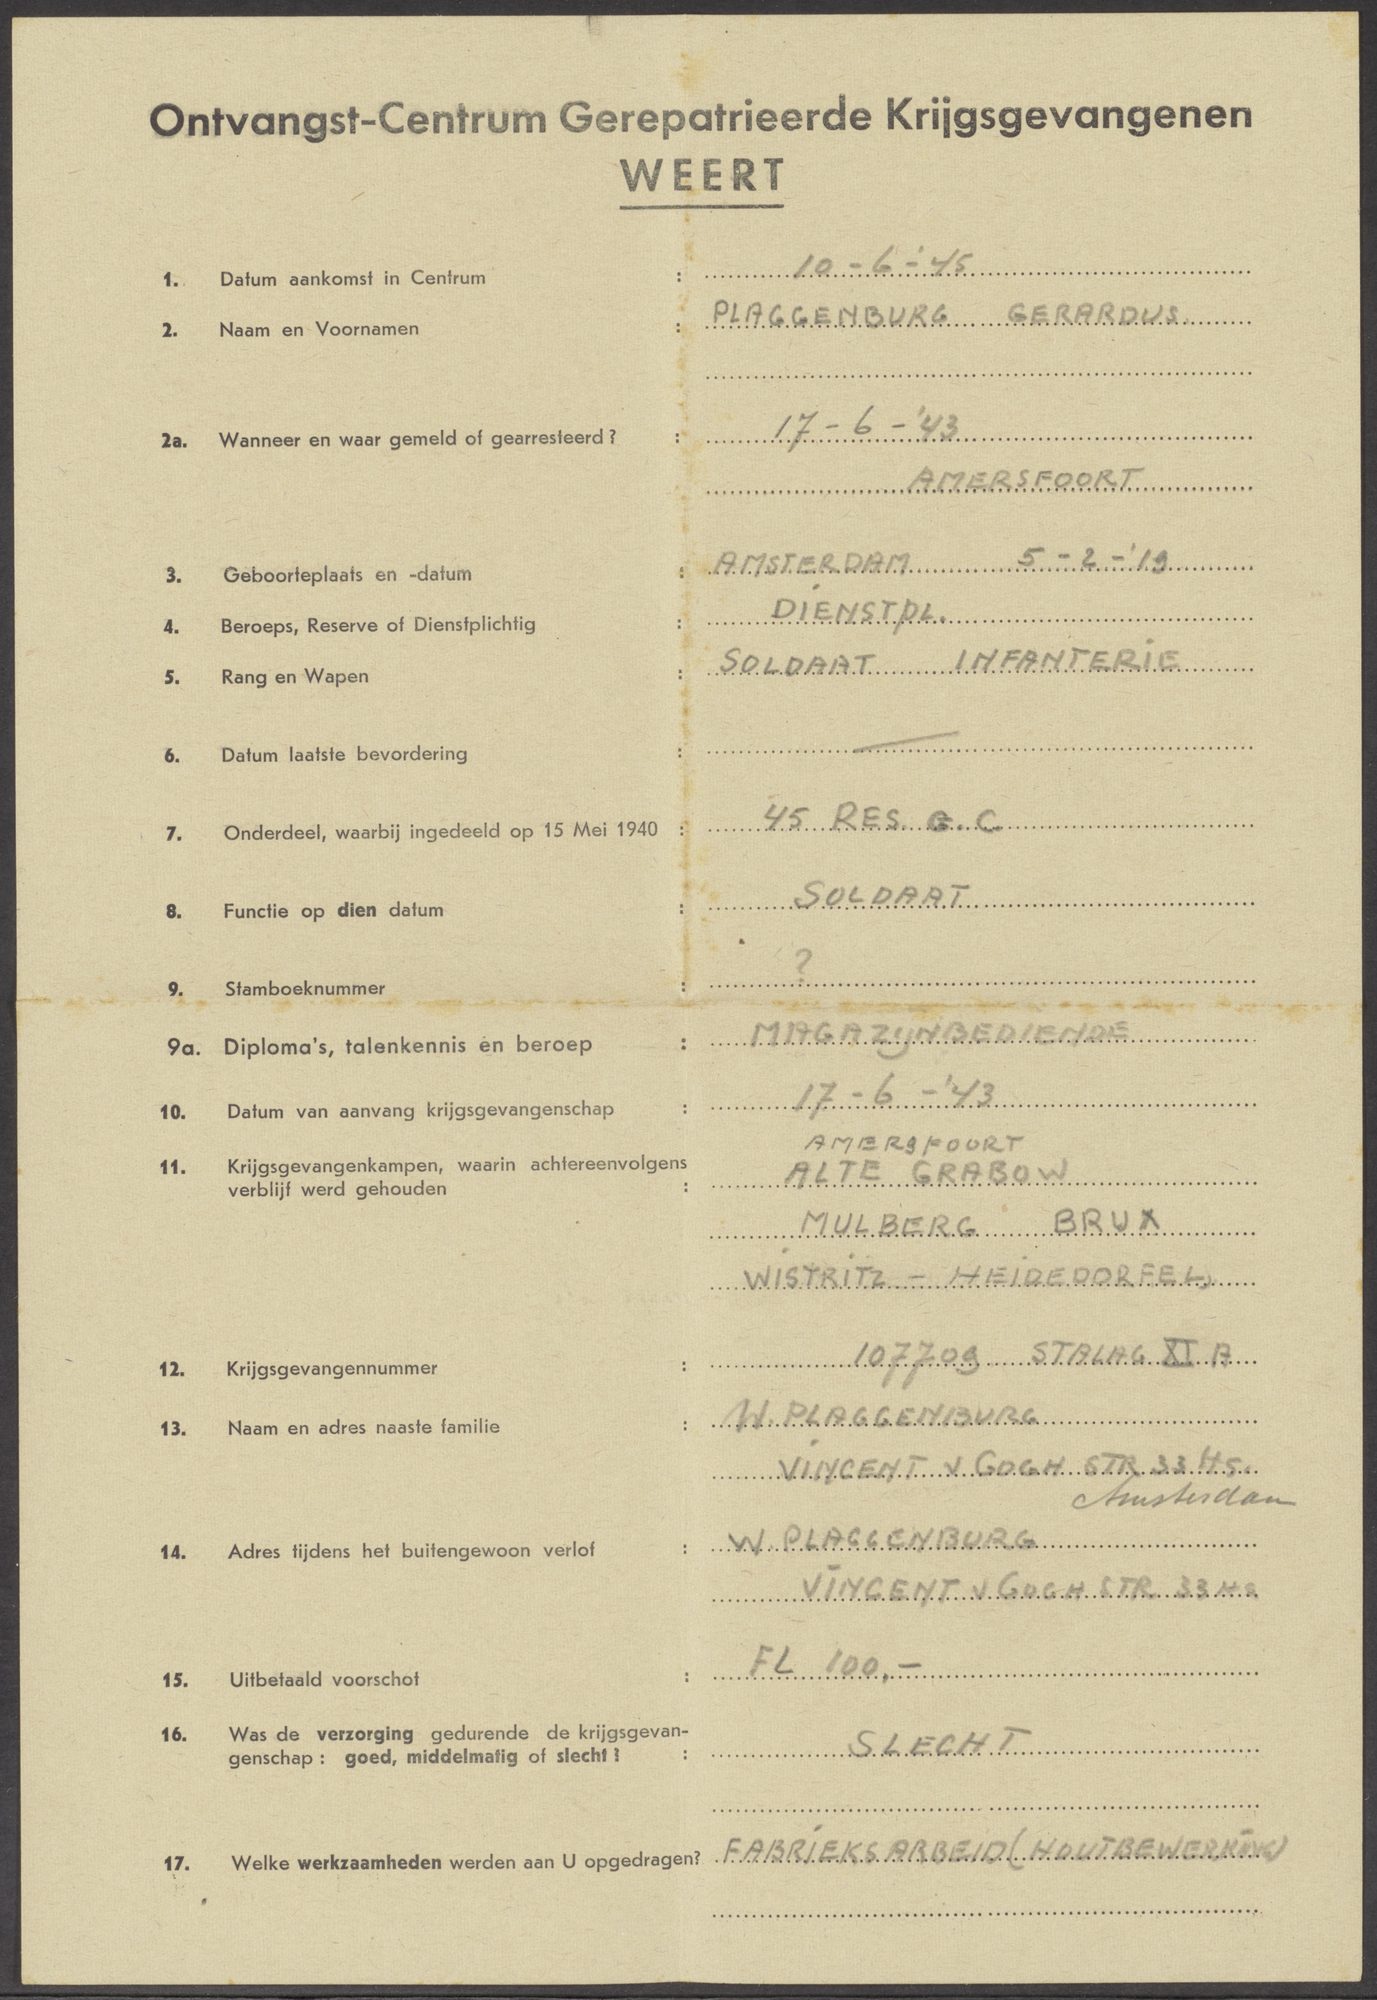 Ontvangst-Centrum Gerepatrieerde Krijgsgevangenen
WEERT
1. Datum aankomst in Centrum : 10-6-'45
2. Naam en Voornamen : PLAGGENBURG GERARDUS
2a. Wanneer en waar gemeld of gearresteerd? : 17-6-'43
AMERSFOORT
3. Geboorteplaats en -datum : AMSTERDAM 5-2-'19
4. Beroeps, Reserve of Dienstplichtig : DIENSTPL.
5. Rang en Wapen : SOLDAAT INFANTERIE
6. Datum laatste bevordering : —
7. Onderdeel, waarbij ingedeeld op 15 Mei 1940 : 45 RES. G.C.
8. Functie op dien datum : SOLDAAT
9. Stamboeknummer : ?
9a. Diploma's, talenkennis en beroep : MAGAZIJNBEDIENDE
10. Datum van aanvang krijgsgevangenschap : 17-6-'43
AMERSFOORT
11. Krijgsgevangenkampen, waarin achtereenvolgens
verblijf werd gehouden : ALTE GRABOW
MULBERG BRUX
WISTRITZ - HEIDEDORFEL
12. Krijgsgevangennummer : 107709 STALAG XI A
13. Naam en adres naaste familie : W. PLAGGENBURG
VINCENT v GOGH STR 33 Hs.
Amsterdam
14. Adres tijdens het buitengewoon verlof : W. PLAGGENBURG
VINCENT v GOGH STR 33 Hs
15. Uitbetaald voorschot : FL 100,-
16. Was de verzorging gedurende de krijgsgevan-
genschap: goed, middelmatig of slecht? : SLECHT
17. Welke werkzaamheden werden aan U opgedragen? FABRIEKSARBEID (HOUTBEWERKING)